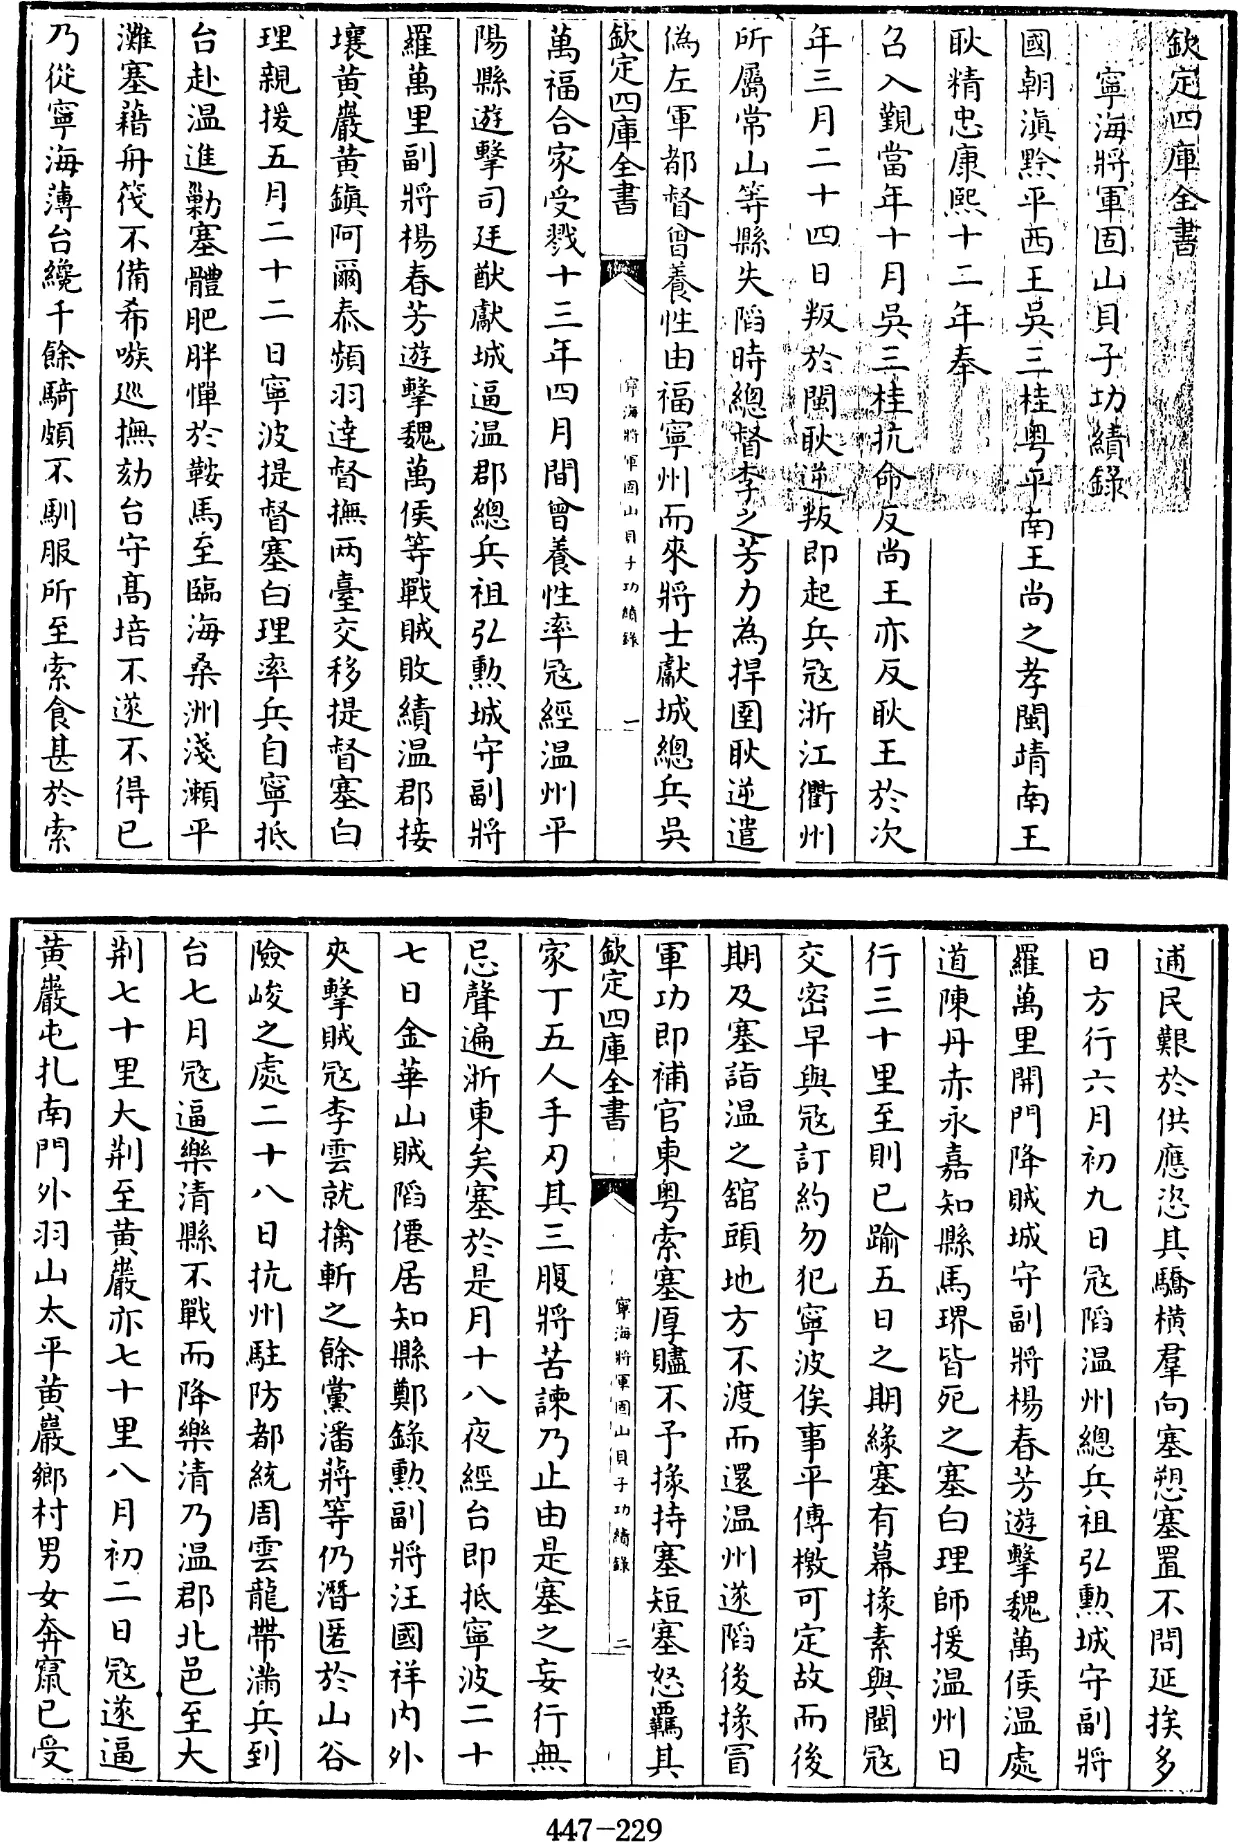 欽定四庫全書
寧海將軍固山貝子功績錄
國朝滇黔平西王吳三桂粤平南王尚之孝閩靖南王
耿精忠康熙十二年奉
召入覲當年十月吳三桂抗命反尚王亦反耿王於次
年三月二十四日叛於閩耿逆叛即起兵寇浙江衢州
所屬常山等縣失陷時總督李之芳力為捍圉耿逆遣
偽左軍都督曾養性由福寧州而來將士獻城總兵吳
欽定四庫全書
寧海將軍固山貝子功績錄
一
萬福合家受戮十三年四月間曾養性率寇經温州平
陽縣遊擊司廷猷獻城逼温郡總兵祖弘勲城守副將
羅萬里副將楊春芳遊擊魏萬侯等戰賊敗績温郡接
壤黄巖黄鎮阿爾泰頻羽達督撫两臺交移提督塞白
理親援五月二十二日寧波提督塞白理率兵自寧抵
台赴温進勦塞體肥胖憚於鞍馬至臨海桑洲淺瀨平
灘塞藉舟筏不備希嗾巡撫劾台守高培不遂不得已
乃從寧海薄台纔千餘騎頗不馴服所至索食甚於索
逋民艱於供應恣其驕橫羣向塞愬塞置不問延挨多
日方行六月初九日寇陷温州總兵祖弘勲城守副將
羅萬里開門降賊城守副將楊春芳遊擊魏萬侯温處
道陳丹赤永嘉知縣馬琾皆死之塞白理師援温州日
行三十里至則已踰五日之期緣塞有幕掾素與閩寇
交密早與寇訂約勿犯寧波俟事平傳檄可定故而後
期及塞詣温之舘頭地方不渡而還温州遂陷後掾冒
軍功即補官東粤索塞厚贐不予掾持塞短塞怒羈其
欽定四庫全書
寧海將軍固山貝子功績錄
二
家丁五人手刃其三腹將苦諫乃止由是塞之妄行無
忌聲遍浙東矣塞於是月十八夜經台即抵寧波二十
七日金華山賊陷僊居知縣鄭錄勲副將汪國祥内外
夾擊賊寇李雲就擒斬之餘黨潘蔣等仍潛匿於山谷
險峻之處二十八日杭州駐防都統周雲龍帶滿兵到
台七月寇逼樂清縣不戰而降樂清乃温郡北邑至大
荆七十里大荆至黄巖亦七十里八月初二日寇遂逼
黄巖屯扎南門外羽山太平黄巖鄉村男女奔竄已受
447-229